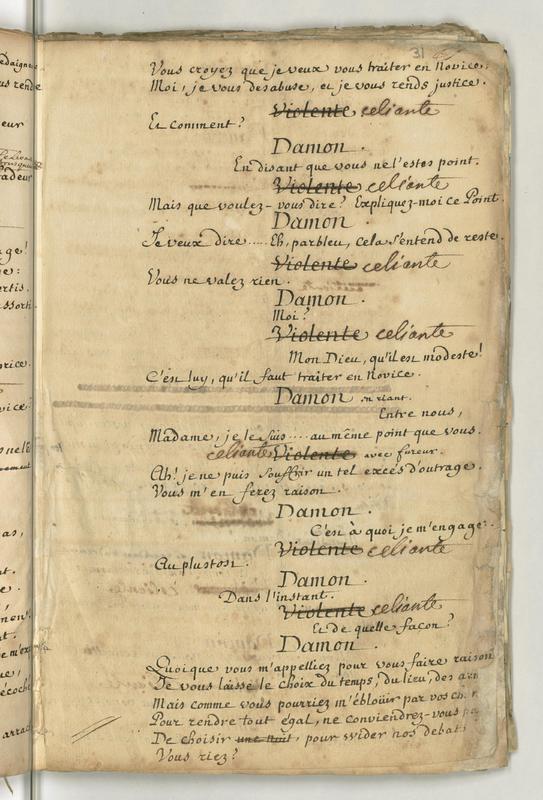 31
Vous croyez que je veux vous traiter en Novice.
Moi, je vous desabuse, et je vous rends justice.
Violente celiante
Et comment?
Damon.
En disant que vous ne l'estes point.
Violente celiante
Mais que voulez-vous dire? Expliquez-moi ce Point.
Damon
Je veux dire..... Eh, parbleu, cela s'entend de reste.
Violente celiante
Vous ne valez rien.
Damon.
Moi?
Violente celiante
Mon Dieu, qu'il est modeste!
C'est luy, qu'il faut traiter en Novice.
Damon en riant.
Entre nous,
Madame, je le suis.... au même point que vous.
celiante Violente avec fureur.
Ah! je ne puis souffrir un tel excès d'outrage.
Vous m'en ferez raison.
Damon.
C'est à quoi je m'engage.
Violente celiante
Au plustost.
Damon.
Dans l'instant.
Violente celiante
Et de quelle facon?
Damon.
Quoique vous m'appelliez pour vous faire raison
Je vous laisse le choix du temps, du lieu, des
Mais comme vous pourriez m'éblouir par vos
Pour rendre tout égal, ne conviendrez-vous
De choisir une nuit, pour vuider nos debats
Vous riez?